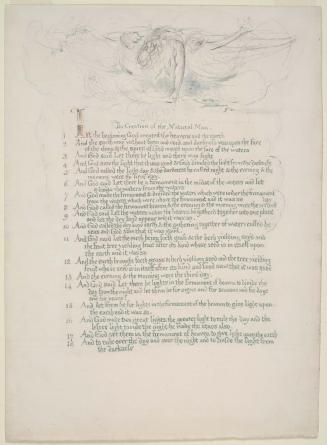 The Creation of the Natural Man
1 In the beginning God created the heavens and the earth
2 And the earth was without form and void and darkness was upon the face
of the deep & the spirit of God moved upon the face of the waters
3 And God said Let there be light and there was light
4 And God saw the light that it was good & God divided the light from the darkness
5 And God called the light day & the darkness he called night & the evening & the
morning were the first day
6 And God said Let there be a firmament in the midst of the waters and let
it divide the waters from the waters
7 And God made the firmament & divided the waters which were under the firmament
from the waters which were above the firmament and it was so
8 And God called the firmament heaven & the evening & the morning were the second day
9 And God said Let the waters under the heaven be gatherd together unto one place
and let the dry land appear and it was so
10 And God called the dry land earth & the gathering together of waters called he
seas and God saw that it was good
11 And God said Let the earth bring forth grass & the herb yielding seed and
the fruit tree yielding fruit after his kind whose seed is in itself upon
the earth and it was so
12 And the earth brought forth grass & herb yielding seed and the tree yielding
fruit whose seed is in itself after his kind and God saw that it was good
13 And the evening & the morning were the third day
14 And God said Let there be lights in the firmament of heaven to divide the
day from the night and let them be for signs and for seasons and for days
and for years
15 And let them be for lights in the firmament of the heaven to give light upon
the earth and it was so
16 And God made two great lights the greater light to rule the day and the
lesser light to rule the night he made the stars also
17 And God set them in the firmament of heaven to give light upon the earth
18 And to rule over the day and over the night and to divide the light from
the darkness